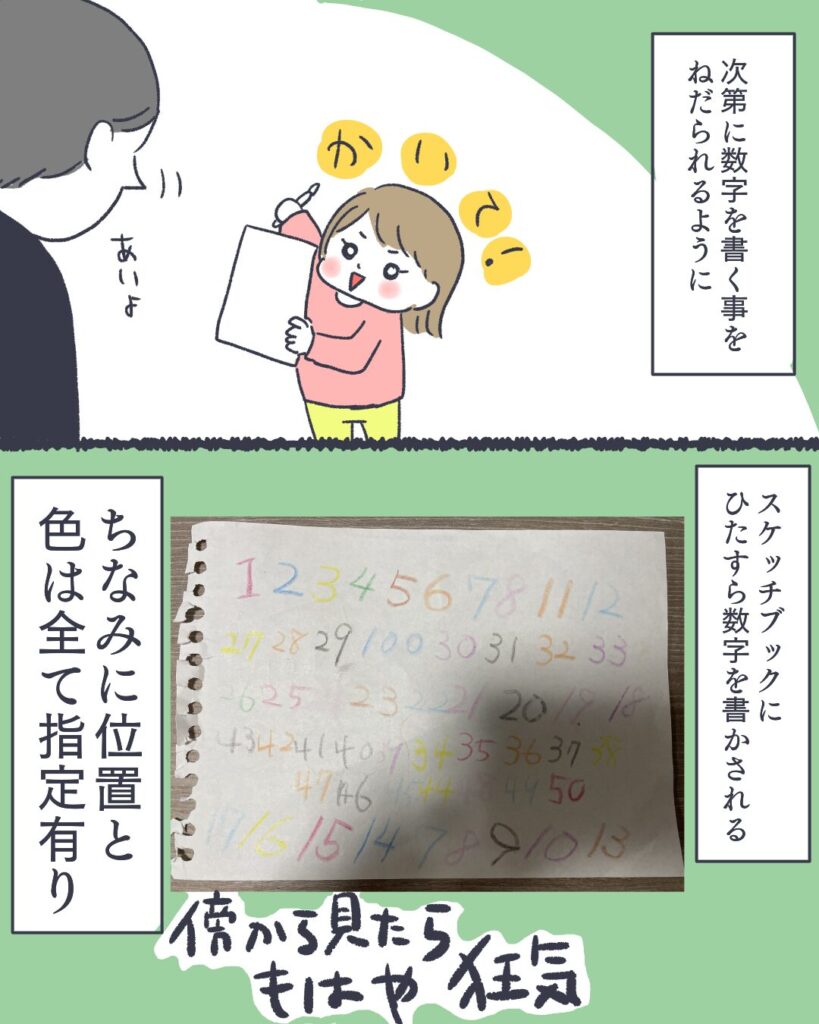 次第に数字を書く事を
ねだられるように
かいて!
あいよ
スケッチブックに
ひたすら数字を書かされる
1 2 3 4 5 6 7 8 11 12
27 28 29 100 30 31 32 33
26 25 23 22 21 20 19 18
43 42 41 40 34 35 36 37 38
47 46 44 50
16 15 14 7 8 9 10 13
ちなみに位置と
色は全て指定有り
傍から見たら
もはや狂気